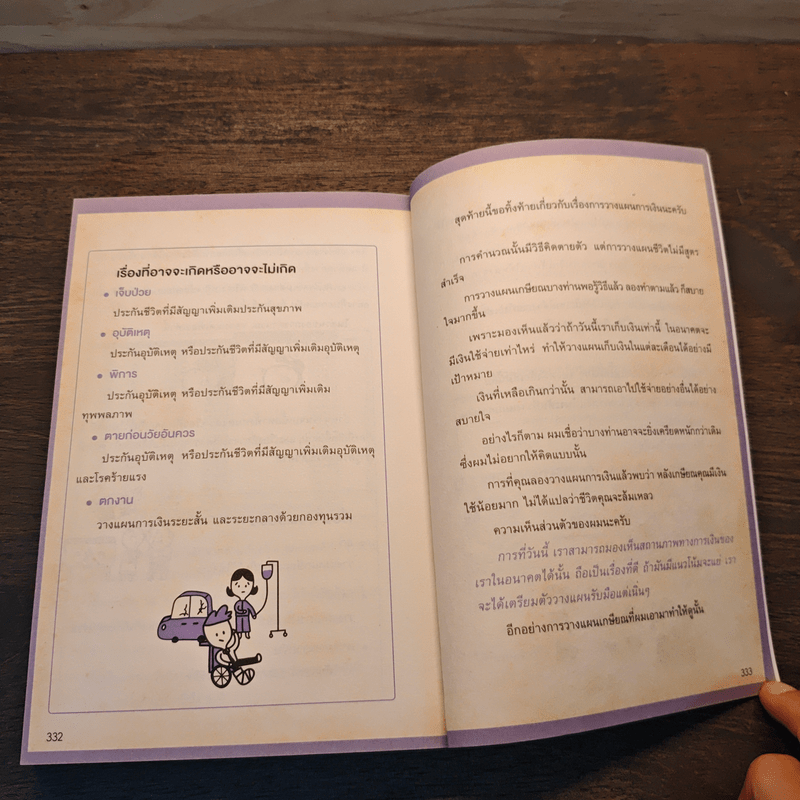 เรื่องที่อาจจะเกิดหรืออาจจะไม่เกิด
• เจ็บป่วย
ประกันชีวิตที่มีสัญญาเพิ่มเติมประกันสุขภาพ
• อุบัติเหตุ
ประกันอุบัติเหตุ หรือประกันชีวิตที่มีสัญญาเพิ่มเติมอุบัติเหตุ
• พิการ
ประกันอุบัติเหตุ หรือประกันชีวิตที่มีสัญญาเพิ่มเติม
ทุพพลภาพ
• ตายก่อนวัยอันควร
ประกันอุบัติเหตุ หรือประกันชีวิตที่มีสัญญาเพิ่มเติมอุบัติเหตุ
และโรคร้ายแรง
• ตกงาน
วางแผนการเงินระยะสั้น และระยะกลางด้วยกองทุนรวม
332
สุดท้ายนี้ขอทิ้งท้ายเกี่ยวกับเรื่องการวางแผนการเงินนะครับ
การคำนวณนั้นมีวิธีคิดตายตัว แต่การวางแผนชีวิตไม่มีสูตร
สำเร็จ
การวางแผนเกษียณบางท่านพอรู้วิธีแล้ว ลองทำตามแล้ว ก็สบาย
ใจมากขึ้น
เพราะมองเห็นแล้วว่าถ้าวันนี้เราเก็บเงินเท่านี้ ในอนาคตจะ
มีเงินใช้จ่ายเท่าไหร่ ทำให้วางแผนเก็บเงินในแต่ละเดือนได้อย่างมี
เป้าหมาย
เงินที่เหลือเกินกว่านั้น สามารถเอาไปใช้จ่ายอย่างอื่นได้อย่าง
สบายใจ
อย่างไรก็ตาม ผมเชื่อว่าบางท่านอาจจะยิ่งเครียดหนักกว่าเดิม
ซึ่งผมไม่อยากให้คิดแบบนั้น
การที่คุณลองวางแผนการเงินแล้วพบว่า หลังเกษียณคุณมีเงิน
ใช้น้อยมาก ไม่ได้แปลว่าชีวิตคุณจะล้มเหลว
ความเห็นส่วนตัวของผมนะครับ
การที่วันนี้ เราสามารถมองเห็นสถานภาพทางการเงินของ
เราในอนาคตได้นั้น ถือเป็นเรื่องที่ดี ถ้ามันมีแนวโน้มจะแย่ เรา
จะได้เตรียมตัววางแผนรับมือแต่เนิ่นๆ
อีกอย่างการวางแผนเกษียณที่ผมเอามาทำให้ดูนั้น
333